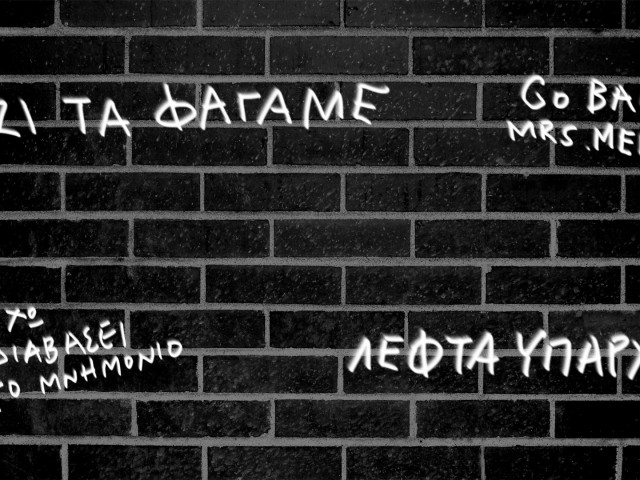 ΤΑ ΦΑΓΑΜΕ
GO BA
MRS. ME
ΔΙΑΒΑΣΕΙ
ΤΟ ΜΝΗΜΟΝΙΟ
ΛΕΦΤΑ ΥΠΑΡΧ